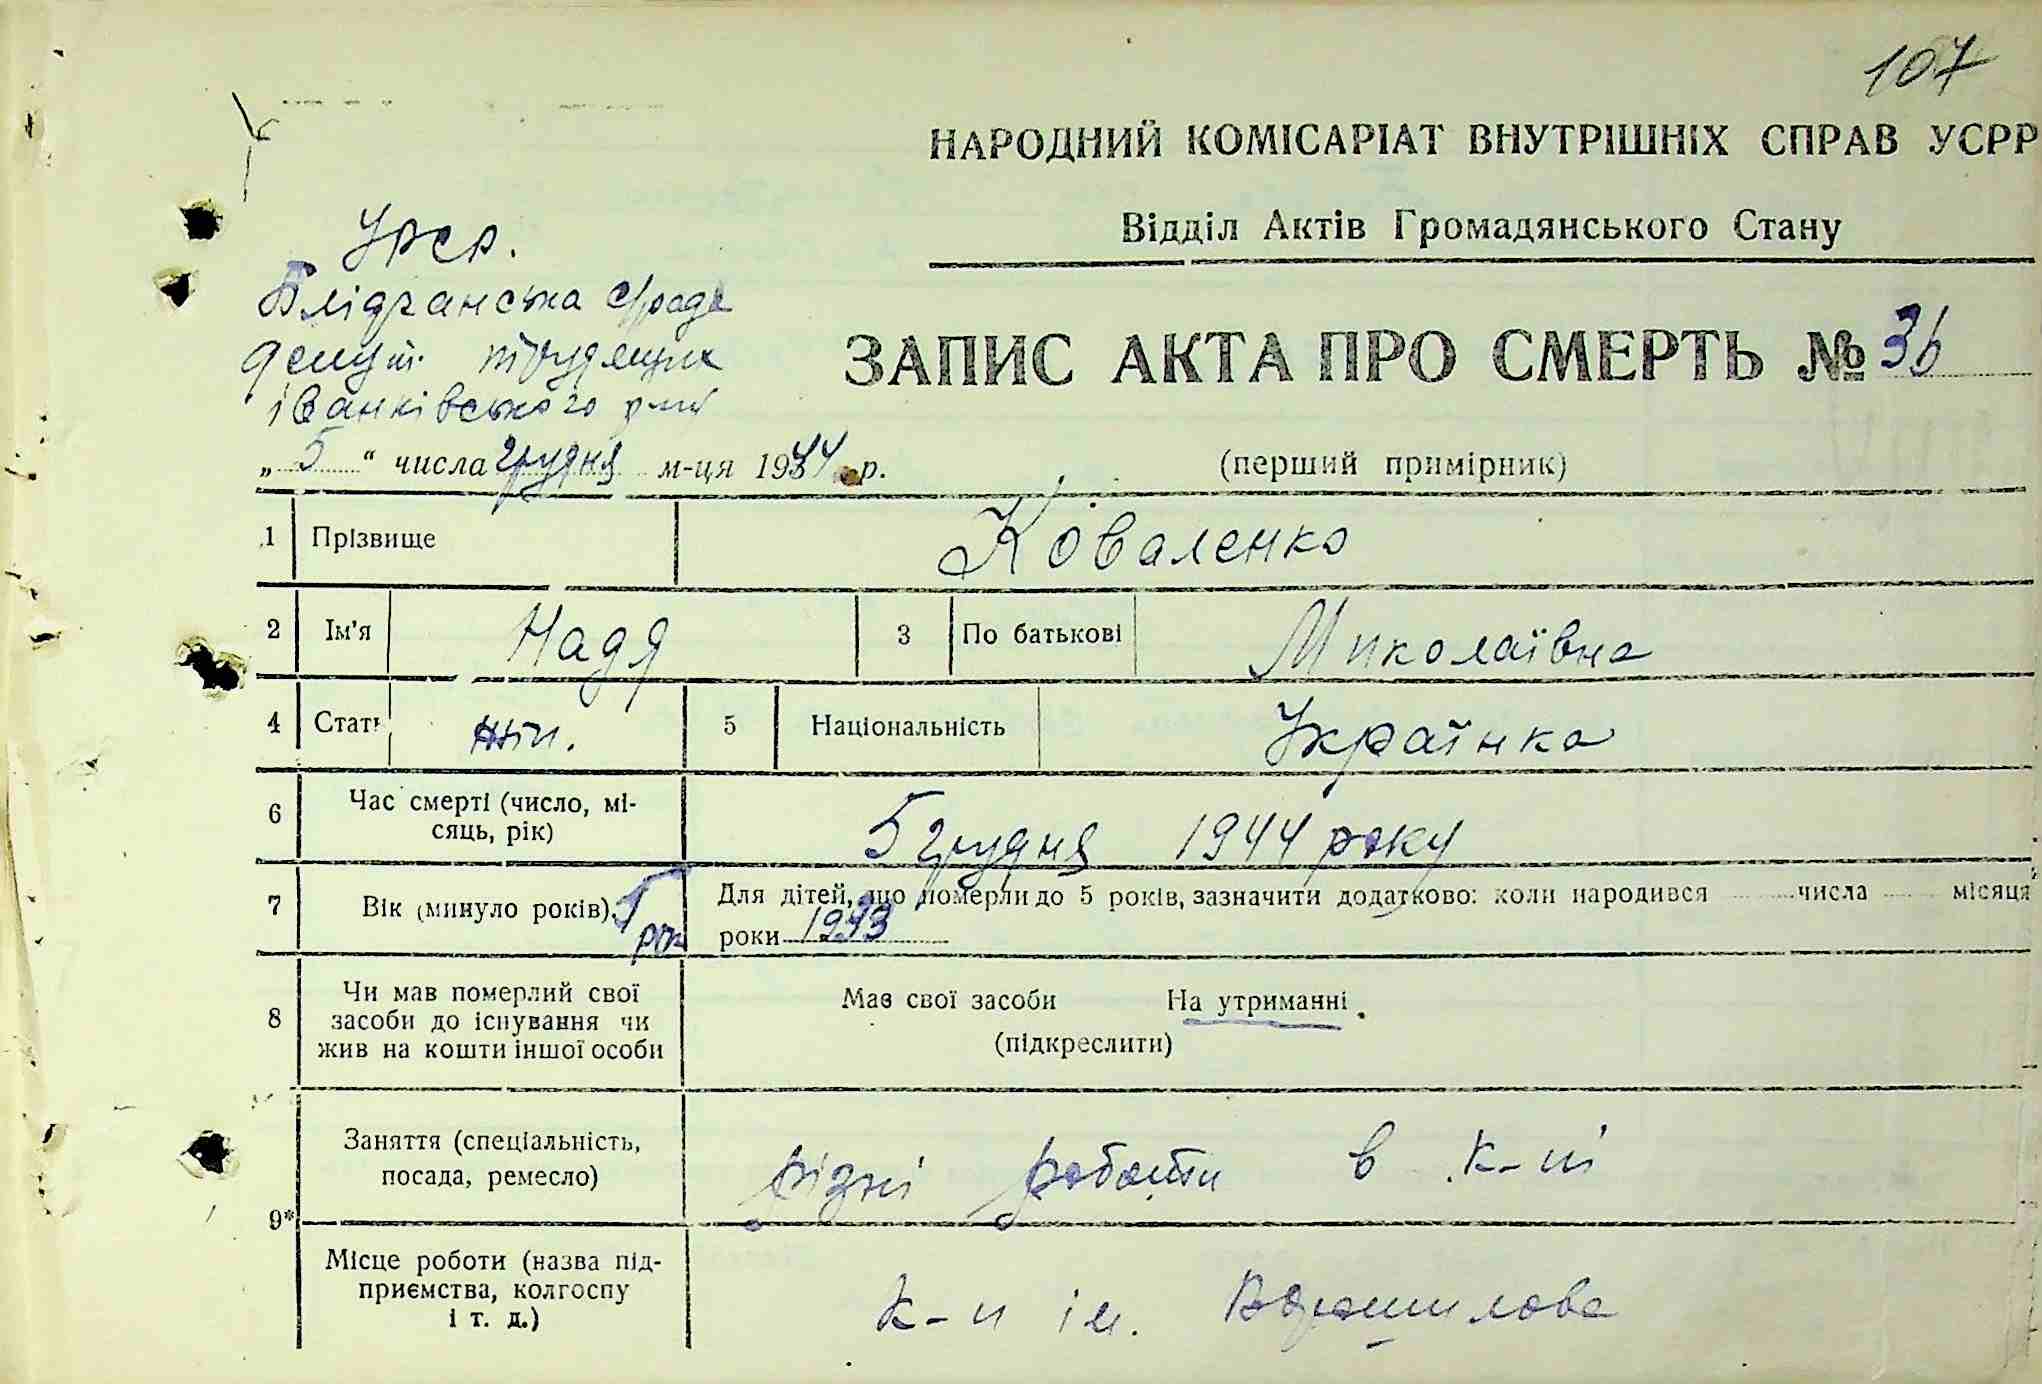 107
НАРОДНИЙ КОМІСАРІАТ ВНУТРІШНІХ СПРАВ УСРР
Відділ Актів Громадянського Стану
Урср.
Блідчанська с/рада
депут. трудящих
іванківського р-ну
ЗАПИС АКТА ПРО СМЕРТЬ № 36
„ 5 “ числа грудня м-ця 1944 р.
(перший примірник)
1 Прізвище Коваленко
2 Ім'я Надя 3 По батькові Миколаївна
4 Стать жін. 5 Національність Українка
6 Час смерті (число, мі-
сяць, рік) 5 грудня 1944 року
7 Вік (минуло років) 1 рік Для дітей, що померли до 5 років, зазначити додатково: коли народився числа місяця
роки 1943
8 Чи мав померлий свої
засоби до існування чи
жив на кошти іншої особи
Мав свої засоби На утриманні
(підкреслити)
9* Заняття (спеціальність,
посада, ремесло) різні роботи в к-пі
Місце роботи (назва під-
приємства, колгоспу
і т. д.) к-п ім. Ворошилова